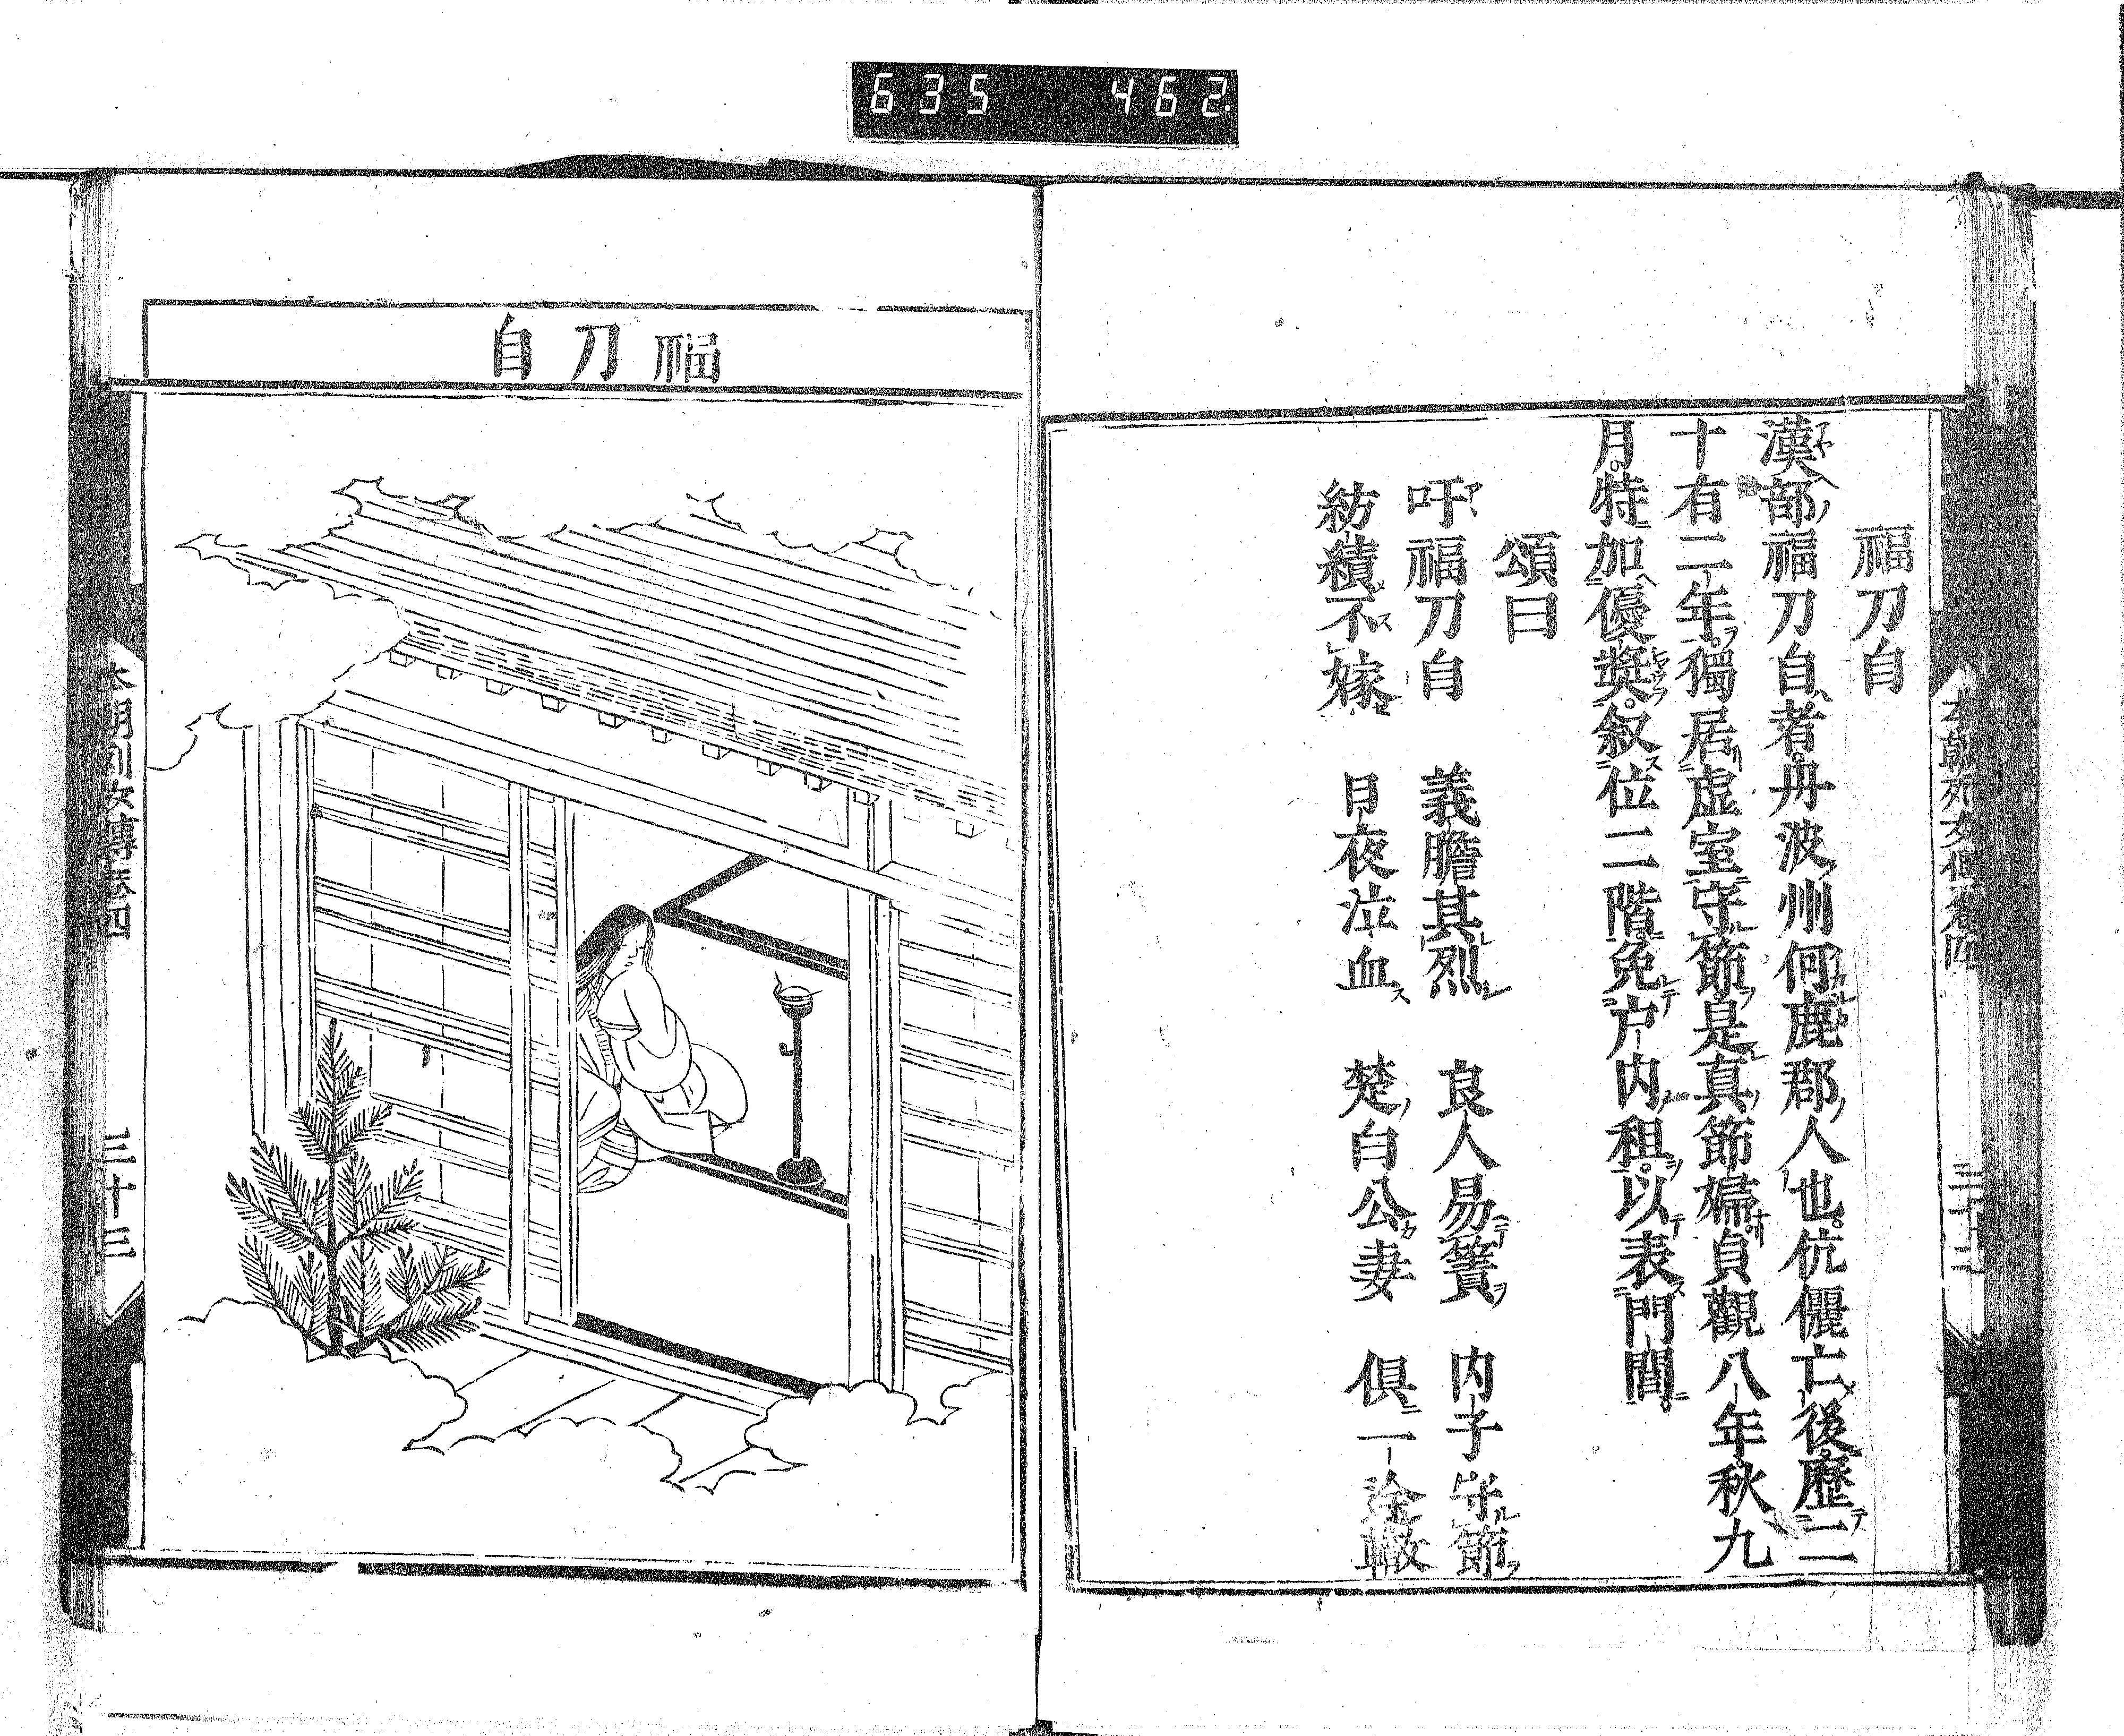 635 462
福刀自
漢部福刀自者丹波州何鹿郡人也伉儷亡後歷二
十有二年獨居虛室守節是真節婦貞觀八年秋九
月特加優奬叙位二階免戶内租以表門閭
頌曰
吁福刀自 義膽其烈 良人易簀 内子守節
紡績不嫁 日夜泣血 楚白公妻 俱一塗轍
福刀自
本朝列女傳卷四 三十三